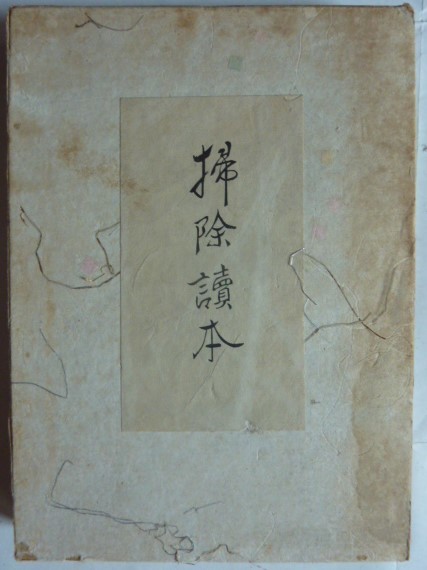 掃除讀本